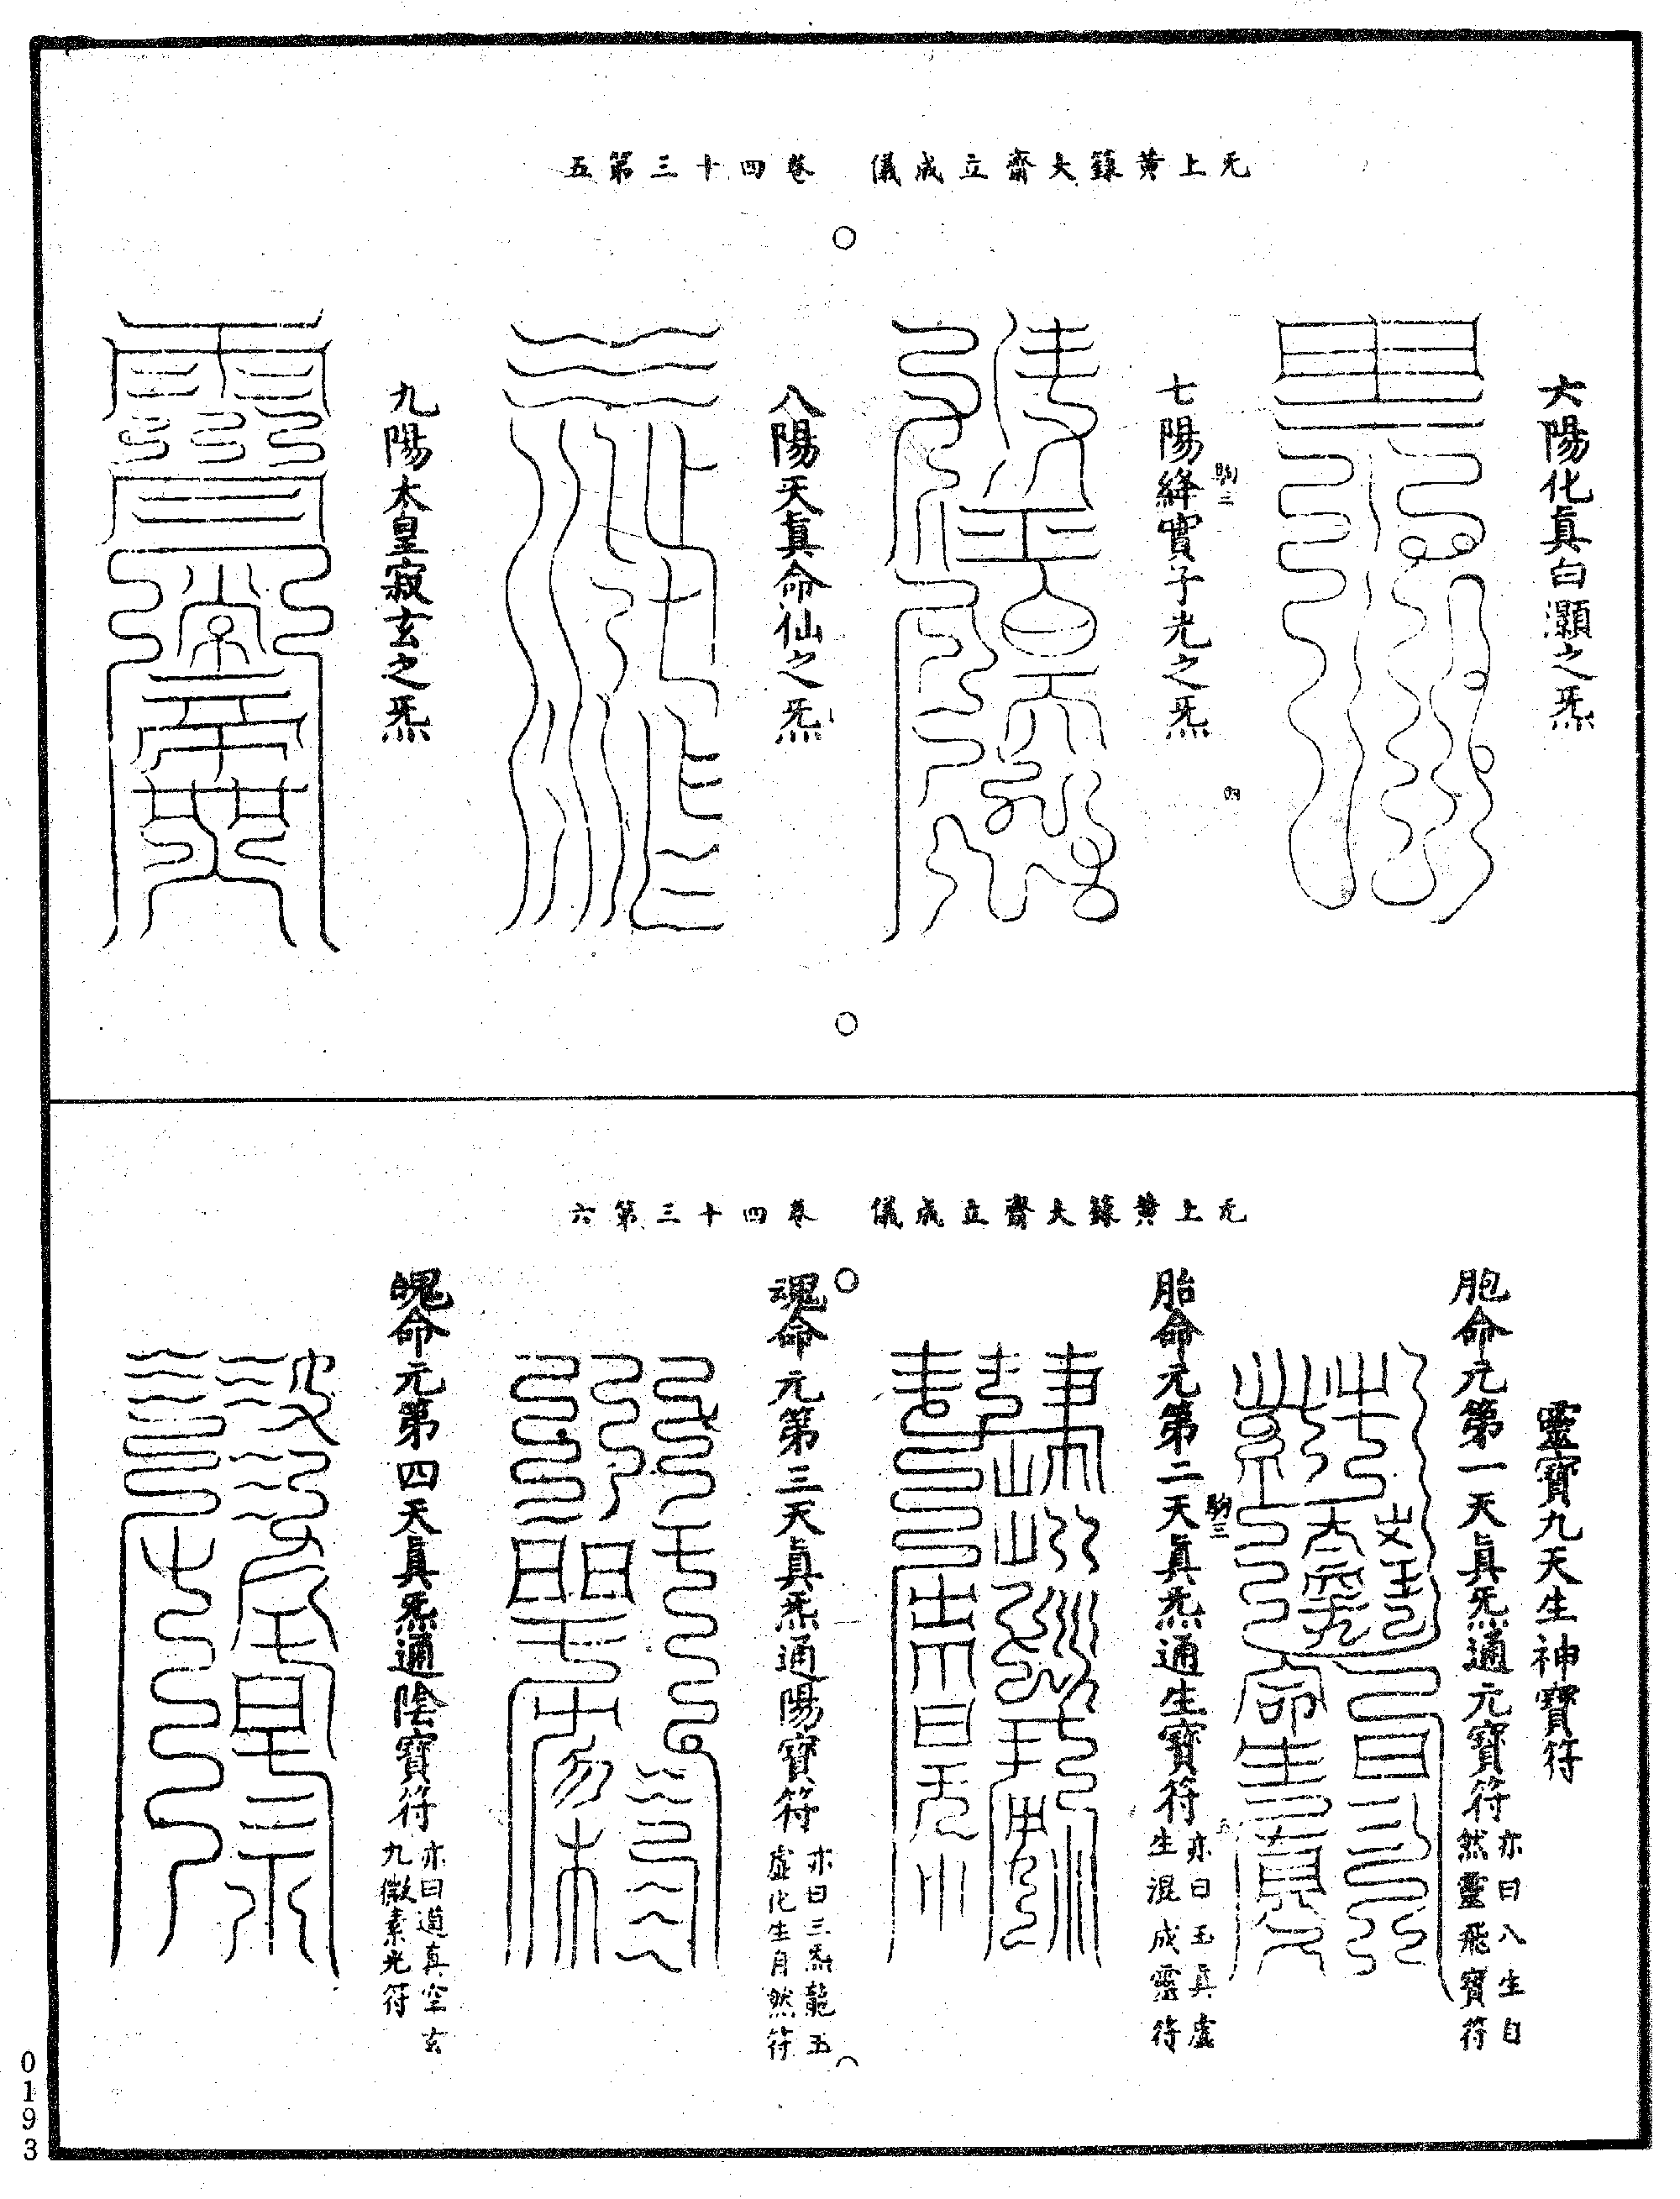 无上黃籙大齋立成儀　卷四十三第五
六陽化真白灝之炁
七陽絳實子光之炁
駒三
四
八陽天真命仙之炁
九陽木皇寂玄之炁
无上黃籙大齋立成儀　卷四十三第六
靈寶九天生神寶符
胞命元第一天真炁通元寶符
亦曰八生自
然靈飛寶符
胎命元第二天真炁通生寶符
亦曰玉真虛
生混成靈符
駒三
五
魂命元第三天真炁通陽寶符
亦曰三炁龍五
虛化生自然符
魄命元第四天真炁通陰寶符
亦曰道真空玄
九微素光符
0193